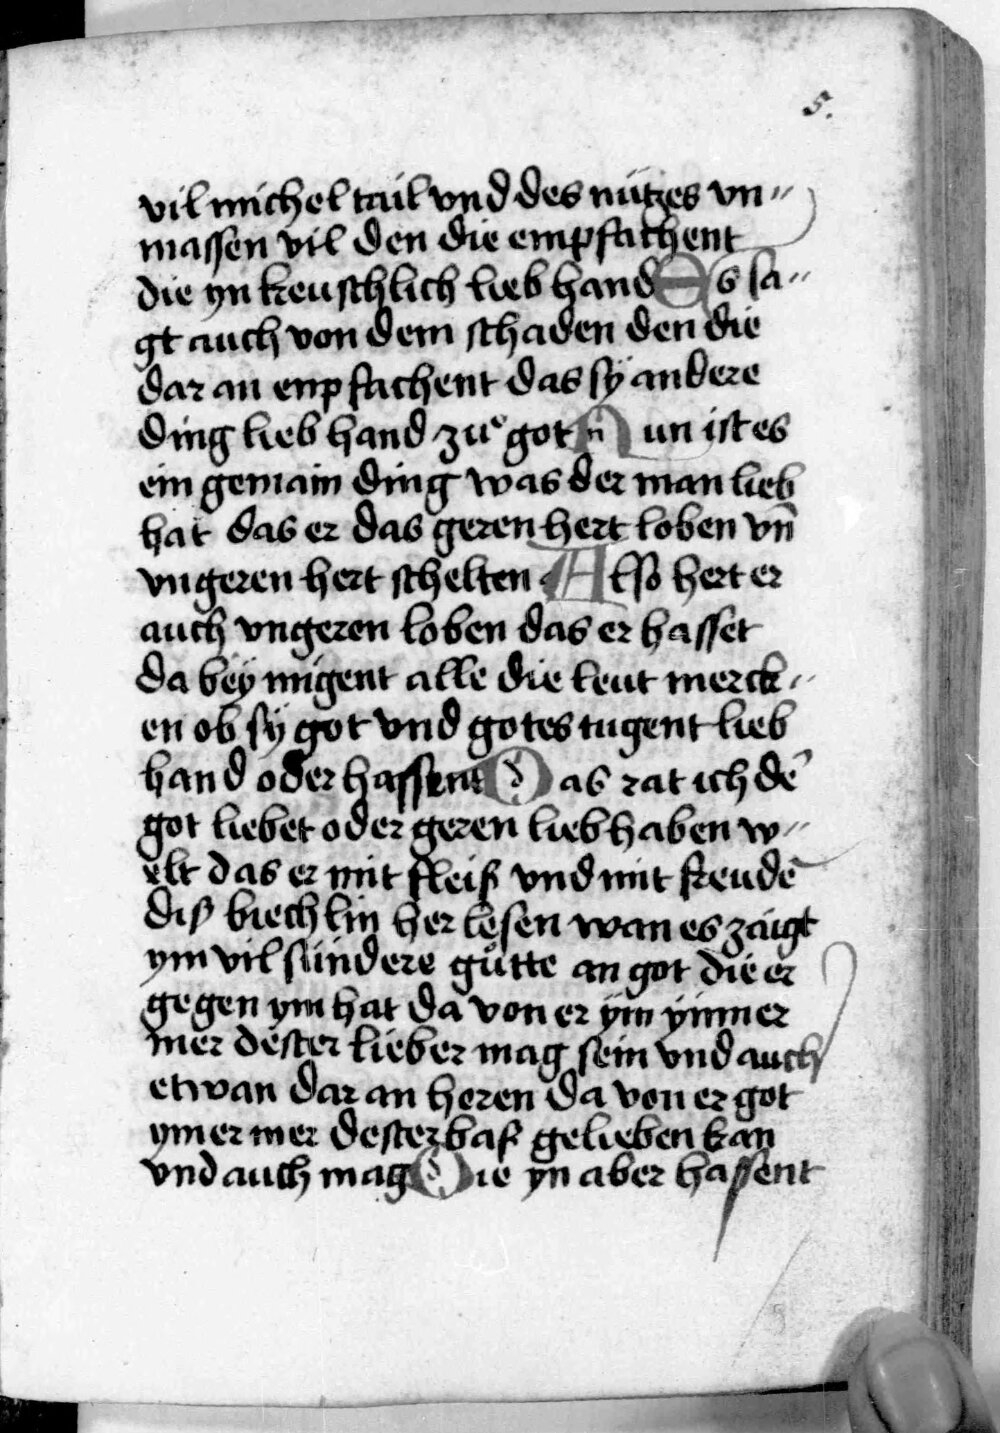 5.
vil michel tail vnd des nützes vn〃
massen vil den die empfachent
die yn keuschlich lieb hand Es sa〃
gt auch von dem schaden den die
dar an enpfachent das sÿ andere
ding lieb hand zuͦ got Nun ist es
ein gemain ding was der man lieb
hat das er das geren hert loben vn̄
vngeren hert schelten Also hert er
auch vngeren loben das er hasset
da beÿ mügent alle die leut merck〃
en ob sÿ got vnd gotes tugent lieb
hand oder hassent Das rat ich dē
got liebet oder geren lieb haben w〃
elt das er mit fleiß vnd mit freudē
diß biechlin her lesen wan es zaigt
ym vil sündere guͤtte an got die er
gegen ym hat da von er ÿm ÿmmer
mer dester lieber mag sein vnd auch
etwan dar an heren da von er got
ymer mer dester baß gelieben kan
vnd auch mag Die yn aber hassent